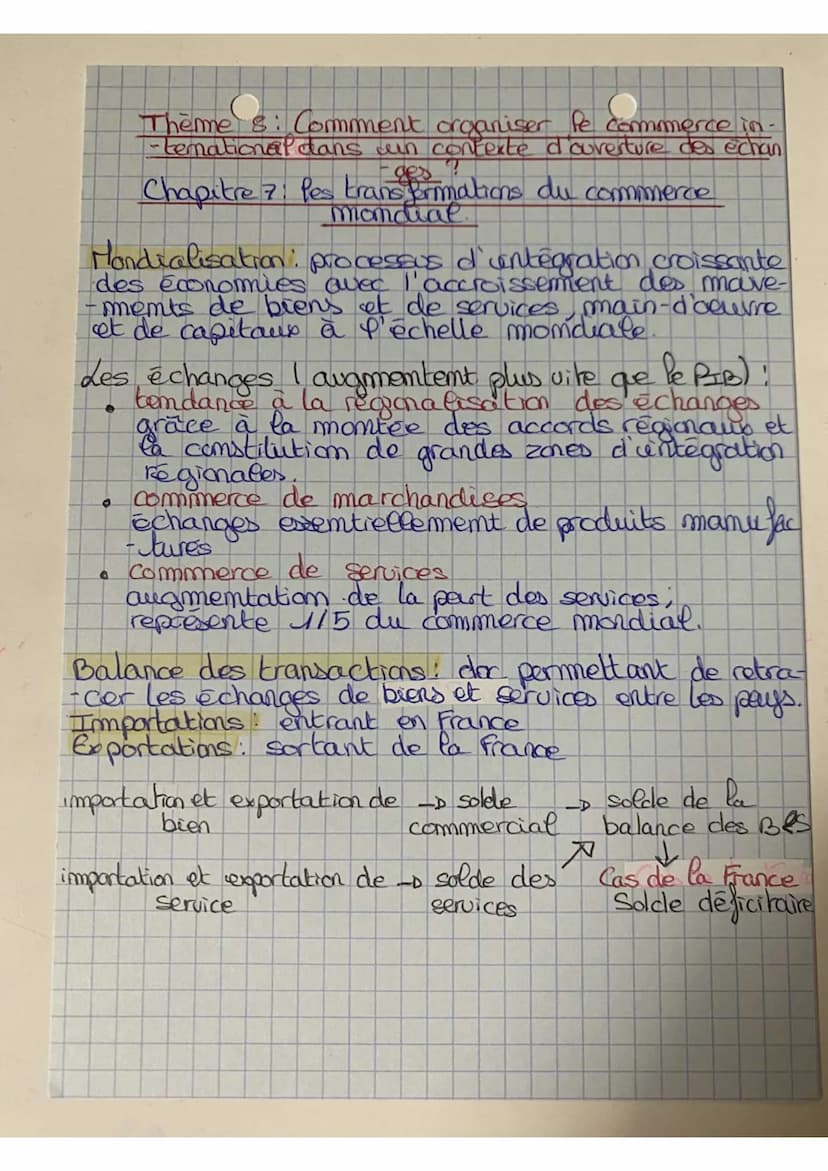 Thème 8 : Comment organiser le commerce in-
-ternational dans un contexte d'ouverture des échan
-ges ?
Chapitre 7 : les transformations du commerce
mondial.
Mondialisation : processus d'intégration croissante
des économies avec l'accroissement des mouve-
-ments de biens et de services, main-d'oeuvre
et de capitaux à l'échelle mondiale.
Les échanges (augmentent plus vite que le PIB) :
• tendance à la régionalisation des échanges
grâce à la montée des accords régionaux et
la constitution de grandes zones d'intégration
régionales.
• commerce de marchandises
échanges essentiellement de produits manufac
-turés
• commerce de services
augmentation de la part des services ;
représente 1/5 du commerce mondial.
Balance des transactions : doc permettant de retra-
-cer les échanges de biens et services entre les pays.
Importations : entrant en France
Exportations : sortant de la France
importation et exportation de → solde → solde de la
bien commercial balance des BES
importation et exportation de → solde des ↗ ↓ Cas de la France
service services Solde déficitaire